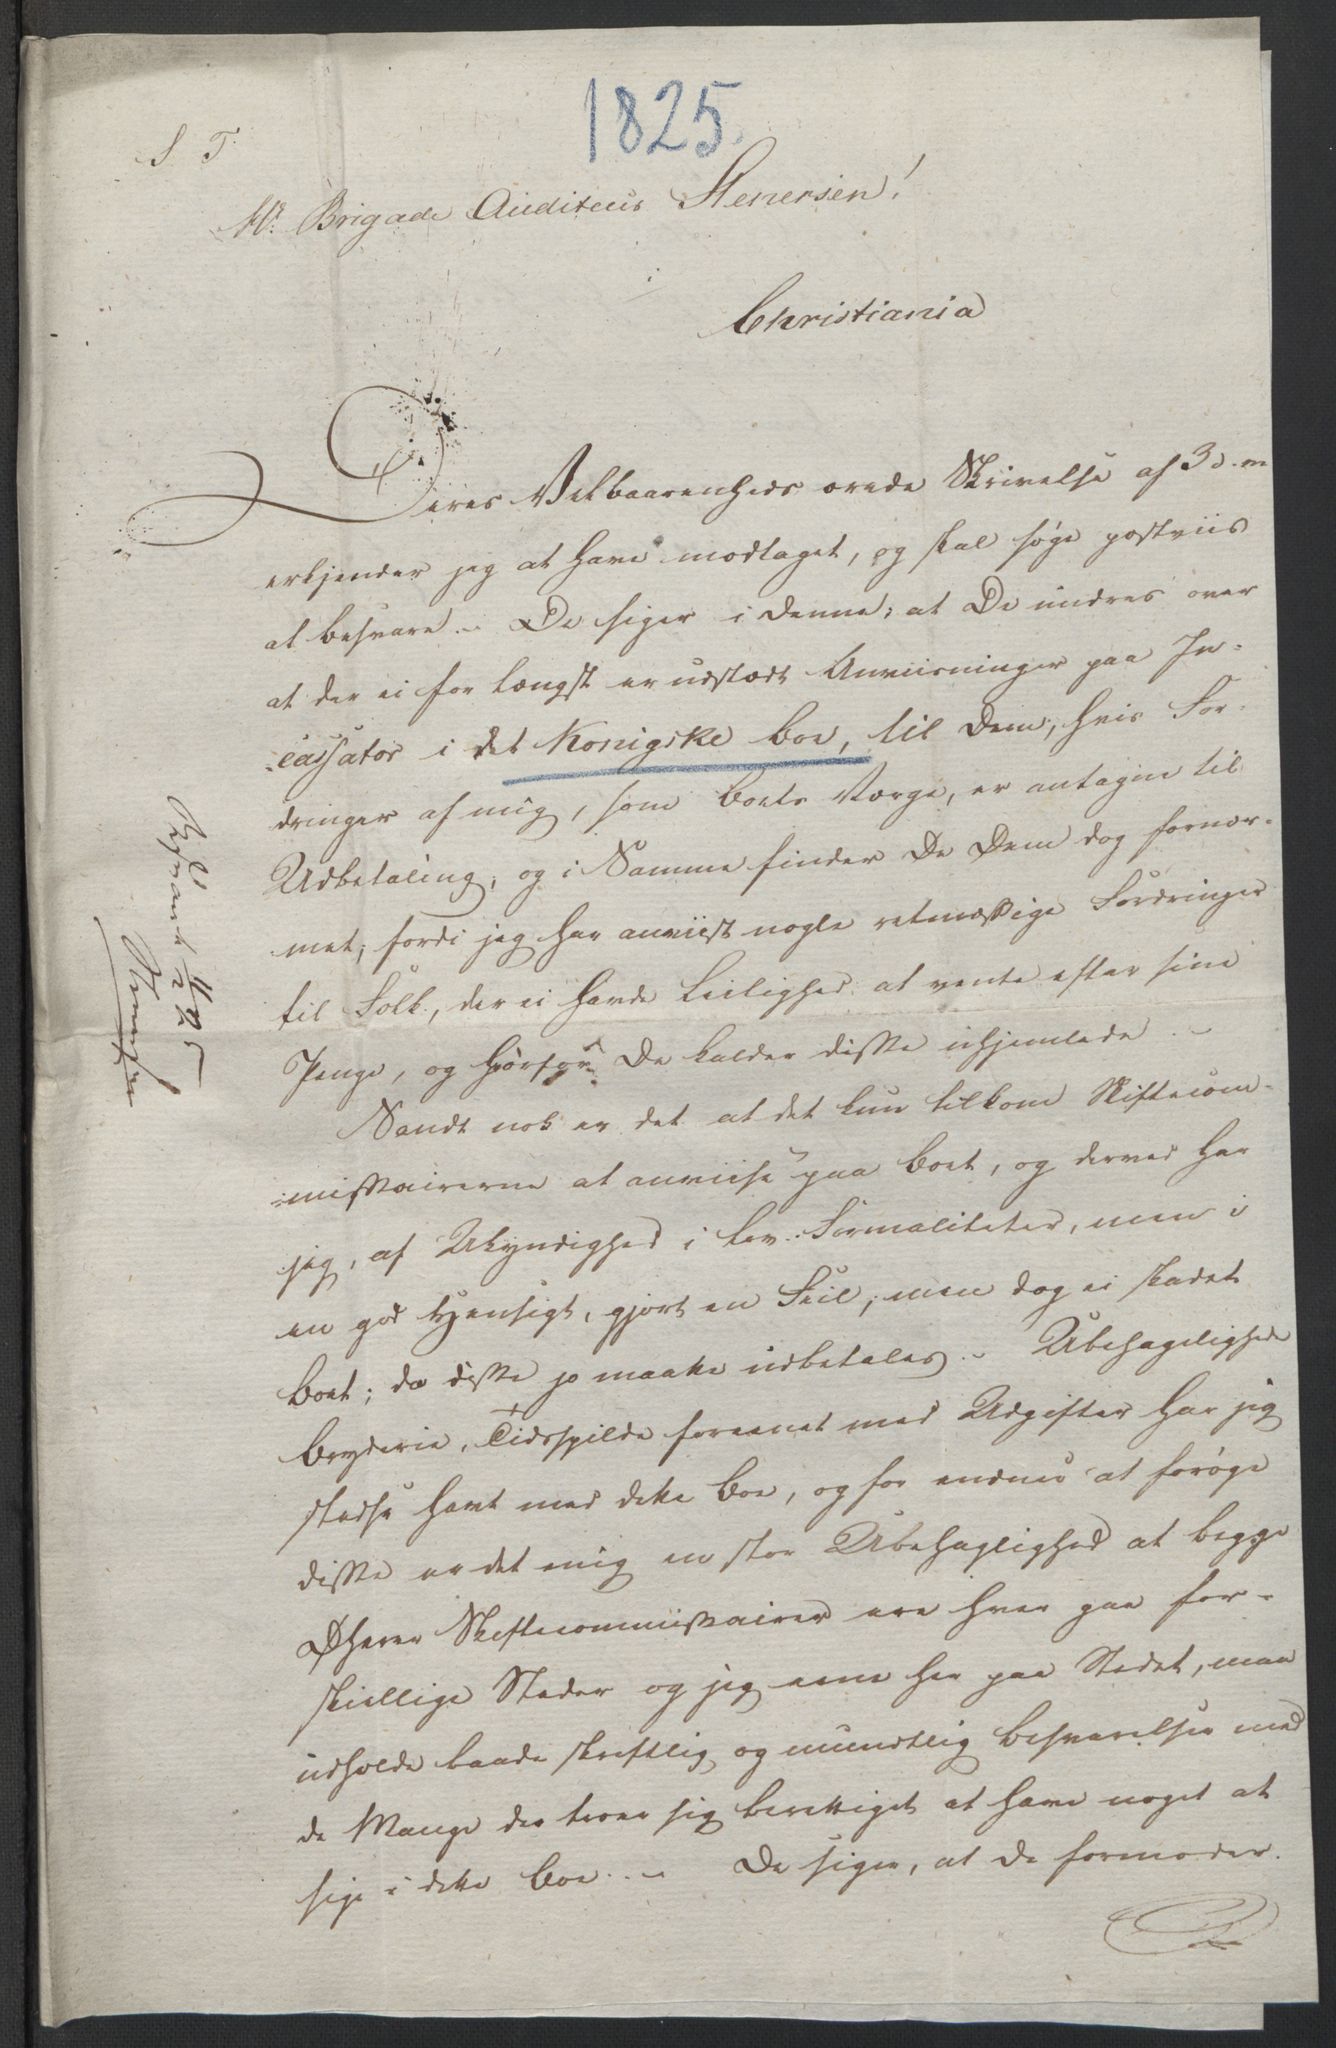 1825.
S T
Hr. Brigade Auditeur Stenersen!
i
Christiania
Deres Velbaarenheds ærede Skrivelse af 3 d. m
erkjender jeg at have modtaget, og skal søge postviis
at besvare. – De siger i denne; at De undres over
at der ei for længst er udstædt Anviisninger paa In-
cassator i det Konigske boe, til Dem, hvis For-
dringer af mig, som boets Værge, er antagne til
Udbetaling, og i Samme finder De Dem dog fornær-
met, fordi jeg har anviist nogle retmæssige Fordringer
til Folk, der ei havde Leilighed at vente efter sine
Penge, og hvorfor De kalder disse uhjemlede. –
Sandt nok er det at det kun tilkom Skiftecom-
missairerne at anviise paa boet, og derved har
jeg, af Ukyndighed i Lov-Formaliteter, men i
en god Hensigt, gjort en Feil, men dog ei skadet
boet; da disse jo maatte udbetales. – Ubehagelighed
bryderie, Tidsspilde foreenet med Udgifter har jeg
stedse havt med dette boe, og for endnu at forøge
disse er det mig en stor Ubehaglighed at begge
DHerrer Skiftecommissairer ere hver paa for-
skiellige Steder og jeg eene her paa Stedet, maa
udholde baade skriftlig og mundtlig besvarelser med
de Mange der troer sig berettiget at have noget at
sige i dette boe. – De siger, at De formoder
Besvaret 11/2 25
Stenersen